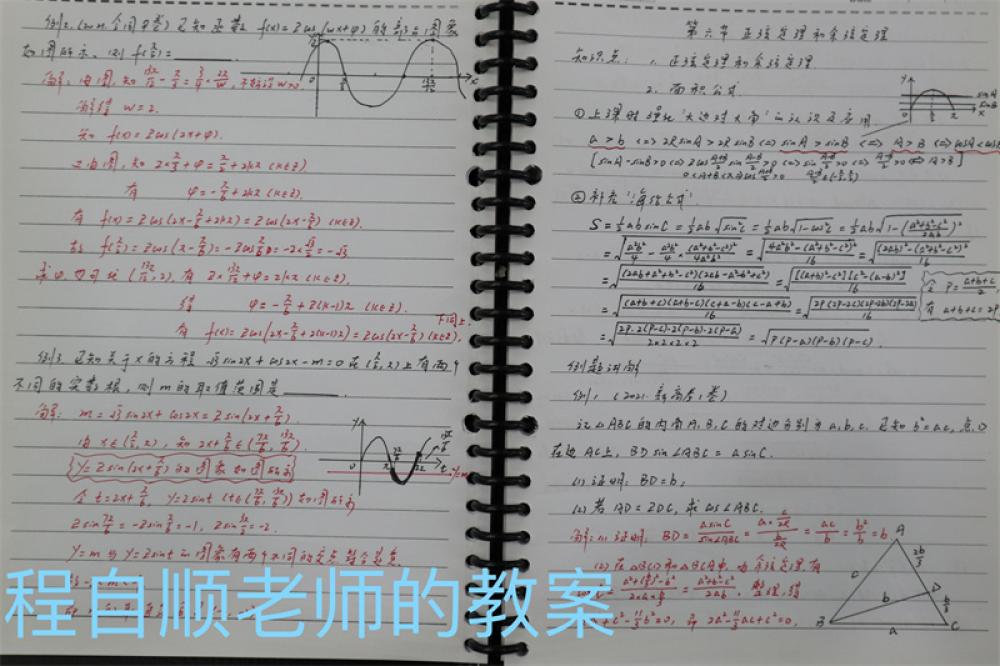 例2.(2021.全国甲卷)已知函数 f(x)=2cos(ωx+φ)的部分图象
如图所示,则f(π/2)=
解:由图,知 13π/12-π/3=3/4·2π/ω,不妨设ω>0,
解得 ω=2.
知 f(x)=2cos(2x+φ).
又由图,知 2×π/3+φ=π/2+2kπ(k∈Z)
有 φ=-π/6+2kπ(k∈Z)
有 f(x)=2cos(2x-π/6+2kπ)=2cos(2x-π/6)(k∈Z).
故 f(π/2)=2cos(π-π/6)=-2cosπ/6=-2×√3/2=-√3
求φ也可代(13π/12,2),有 2×13π/12+φ=2kπ(k∈Z),
得 φ=-π/6+2(k-1)π(k∈Z).
下同上.
有 f(x)=2cos(2x-π/6+2(k-1)π)=2cos(2x-π/6)(k∈Z),
例3.已知关于x的方程 √3sin2x+cos2x-m=0在(π/2,π)上有两个
不同的实数根,则m的取值范围是
解:m=√3sin2x+cos2x=2sin(2x+π/6).
由x∈(π/2,π),知2x+π/6∈(7π/6,13π/6).
y=2sin(2x+π/6)的图象如图所示
令t=2x+π/6,y=2sint(t∈(7π/6,13π/6))如图所示
2sin7π/6=-2sinπ/6=-1,2sin3π/2=-2.
y=m与y=2sint的图象有两个不同的交点符合题意.
第六节 正弦定理和余弦定理
知识点:1.正弦定理和余弦定理
2.面积公式
①上课时强化"大边对大角"的认识及应用
a>b⇔2RsinA>2RsinB⇔sinA>sinB⇔A>B⇔cosA<cosB
②补充"海伦公式"
S=1/2absinC=1/2ab√sin²C=1/2ab√1-cos²C=1/2ab√1-((a²+b²-c²)/2ab)²
=√a²b²/4-a²b²/4×(a²+b²-c²)²/4a²b²=√4a²b²-(a²+b²-c²)²/16=√(2ab)²-(a²+b²-c²)²/16
=√(2ab+a²+b²-c²)(2ab-a²-b²+c²)/16=√[(a+b)²-c²][c²-(a-b)²]/16
令 P=(a+b+c)/2
有 a+b+c=2P
=√(a+b+c)(a+b-c)(c+a-b)(c-a+b)/16=√2P(2P-2c)(2P-2b)(2P-2a)/16
=√2P·2(P-c)·2(P-b)·2(P-a)/2×2×2×2=√P(P-a)(P-b)(P-c).
例题讲解
例1.(2021.新高考1卷)
记△ABC的内角A,B,C的对边分别为a,b,c.已知b²=ac,点D
在边AC上,BDsin∠ABC=asinC.
(1)证明:BD=b;
(2)若AD=2DC,求cos∠ABC.
解:(1)证明:BD=asinC/sin∠ABC=(a×c/2R)/(b/2R)=ac/b=b²/b=b
(2)在△BCD和△ABC中,由余弦定理有
程自顺老师的教案